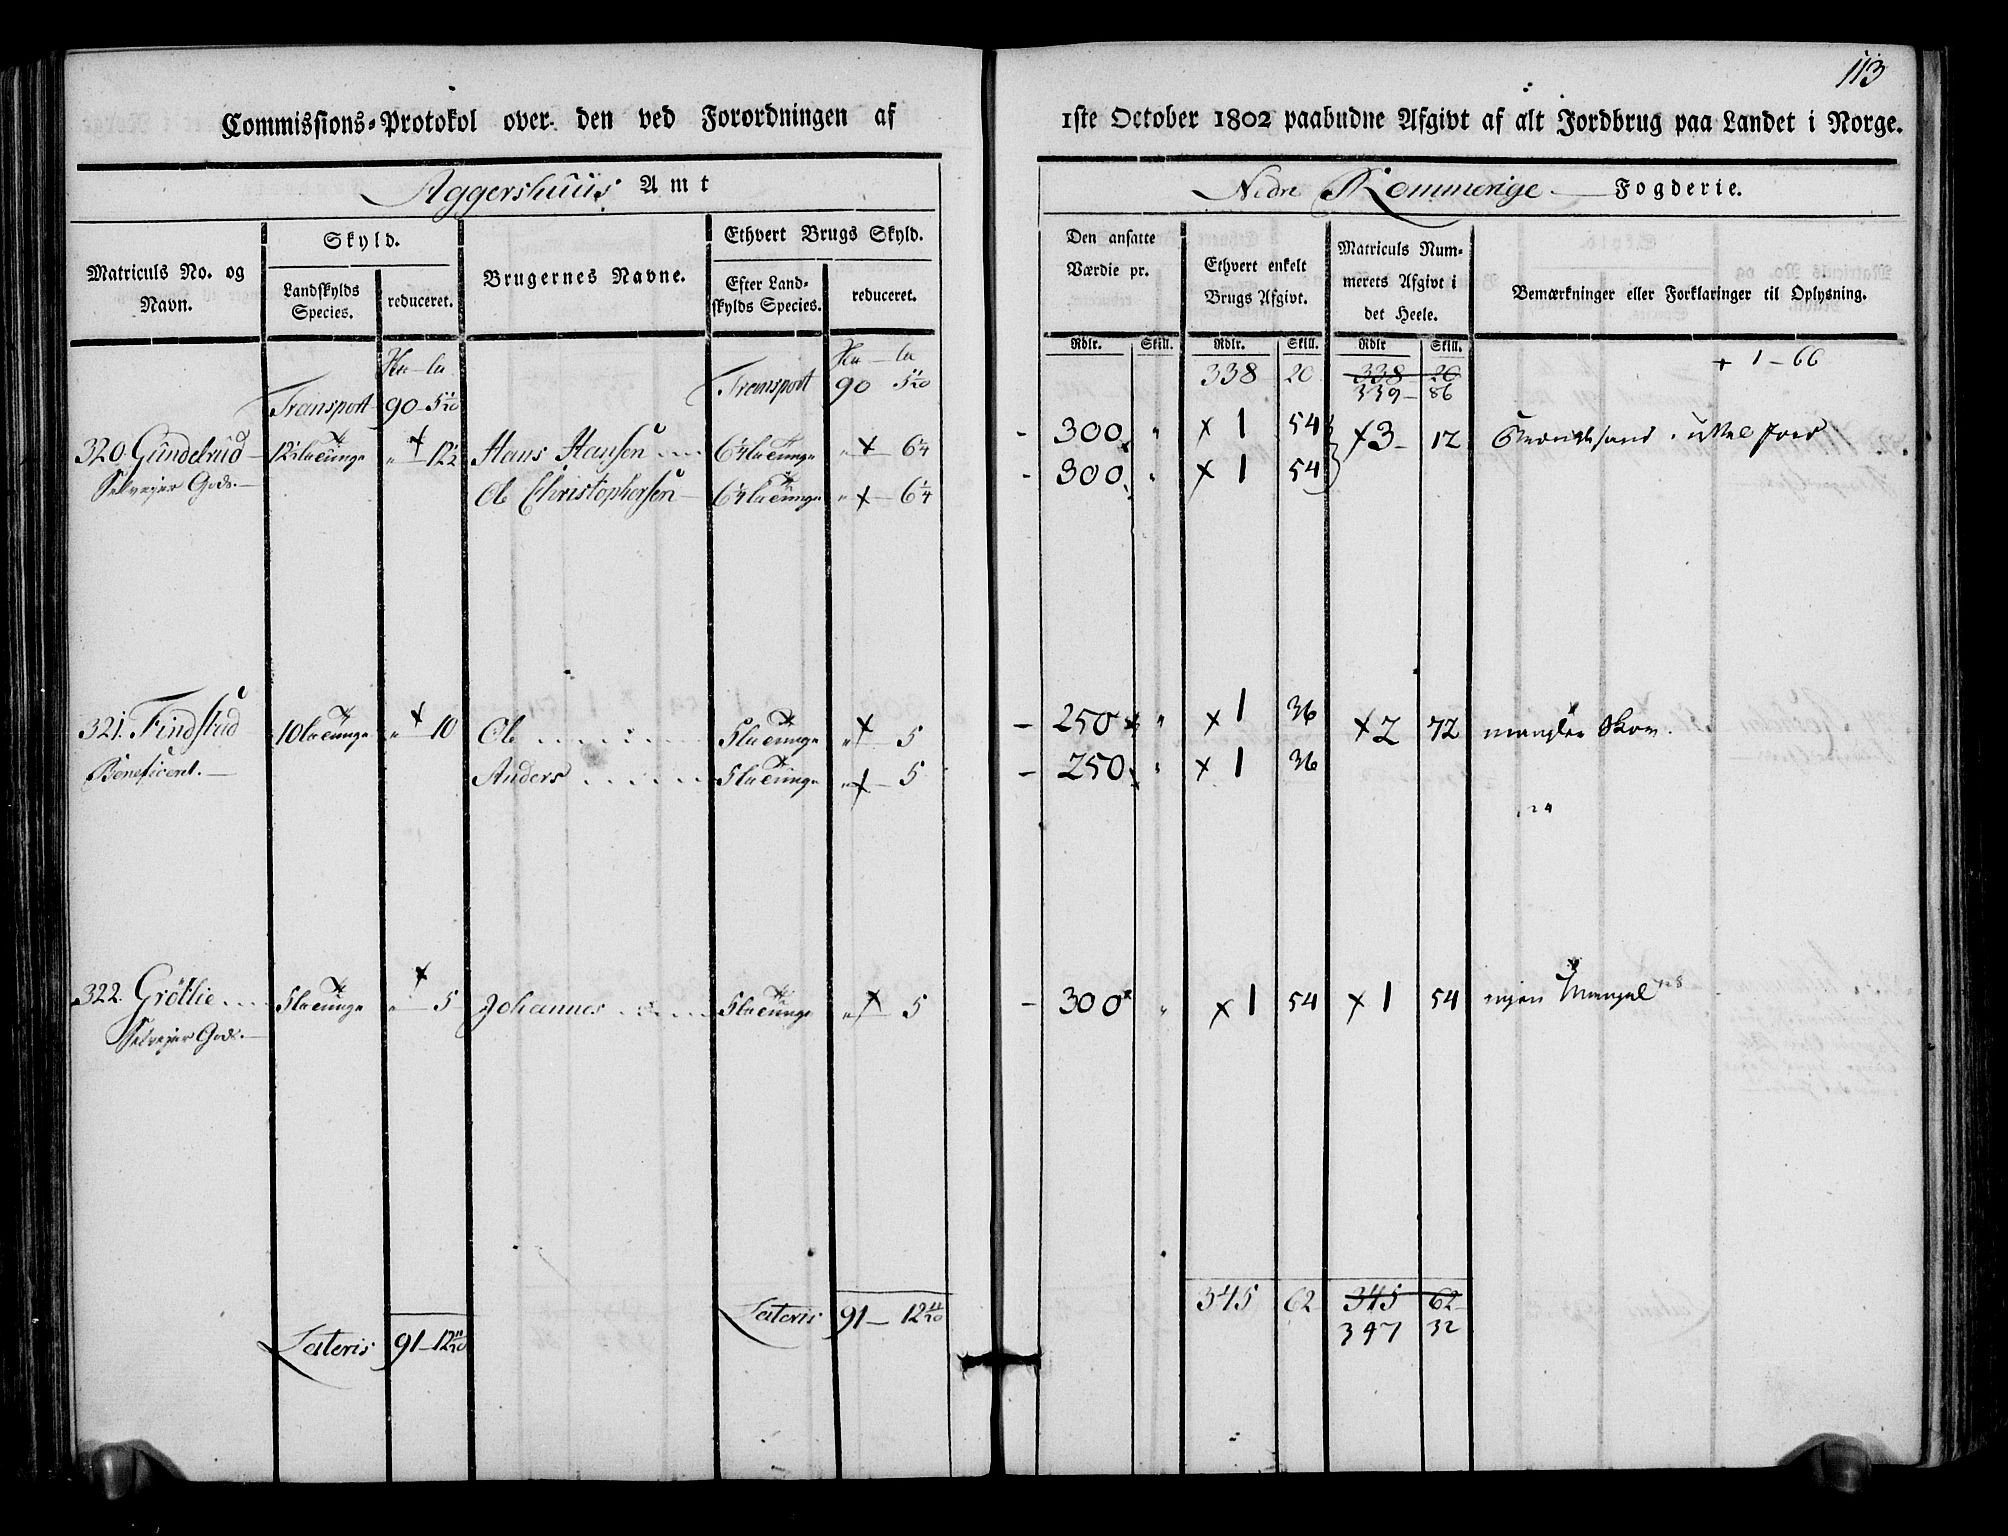 113
Commissions-Protokol over den ved Forordningen af 1ste October 1802 paabudne Afgivt af alt Jordbrug paa Landet i Norge.
Aggershuus Amt
Nedre Rommerige Fogderie.
Matriculs No. og Navn.
Skyld.
Landskylds Species.
reduceret.
Brugernes Navne.
Ethvert Brugs Skyld.
Efter Landskylds Species.
reduceret.
Den ansatte Værdie pr.
Ethvert enkelt Brugs Afgivt.
Matriculs Nummerets Afgivt i det Heele.
Bemærkninger eller Forklaringer til Oplysning.
Rdlr. Skill. Rdlr. Skill. Rdlr Skill.
Transport 90 Transport 90 338 20 338 20 + 1 - 66
339 - 86
320. Gundelrud 12½ 12½ Hans Hansen 6¼ 6¼ 300 " x 1 54 x 3 - 12
Selvejer Gods. Ole Christophersen 6¼ 6¼ 300 " x 1 54
321. Findstad 10 " x 10 Ole 5 " x 5 250 " x 1 36 x 2 72 mangler Skov.
Beneficeret. Anders 5 " x 5 250 " x 1 36
322. Gröttlie 5 " x 5 Johannes 5 " x 5 300 " x 1 54 x 1 54 ingen Mangel
Selvejer Gods.
Lateris 91 - 12 Lateris 91 - 12 345 62 345 62
347 32